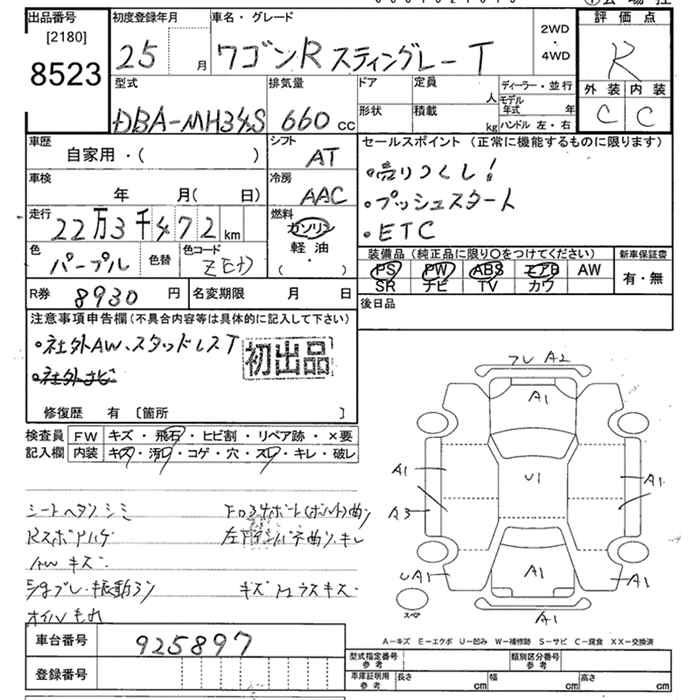 出品番号
[2180]
8523
初度登録年月
25 月
車名・グレード
ワゴンR スティングレー T
2WD
・
4WD
評価点
R
外装 内装
C C
型式
DBA-MH34S
排気量
660 cc
ドア
定員
人
形状
積載
kg
ディーラー・並行
モデル年式 年
ハンドル 左・右
車歴
自家用・( )
シフト
AT
車検
年 月( 日)
冷房
AAC
走行
22万3千472km
燃料
ガソリン
軽油
( ・ )
色
パープル
色替
色コード
ZEH
R券
8930 円
名変期限 月 日
セールスポイント (正常に機能するものに限ります)
・売りつくし!
・プッシュスタート
・ETC
装備品(純正品に限り○をつけてください)
新車保証書
PS PW ABS エアB AW
SR ナビ TV カワ
有・無
後日品
注意事項申告欄(不具合内容等は具体的に記入して下さい)
・社外AW、スタッドレスT
・社外ナビ
初出品
修復歴 有 〔箇所 〕
検査員
記入欄
FW キズ・飛石・ヒビ割・リペア跡・×要
内装 キズ・汚れ・コゲ・穴・スレ・キレ・破レ
シートヘタリ シミ
AWキズ
オイルもれ
フレ A2
A1
A1
U1
A1
A3
A1
UA1
A1
A1
スペア
A1
A-キズ E-エクボ U-凹み W-補修跡 S-サビ C-腐食 XX-交換済
車台番号
925897
登録番号
型式指定番号
参考
類別区分番号
参考
車庫証明用
参考
長さ cm
幅 cm
高さ cm